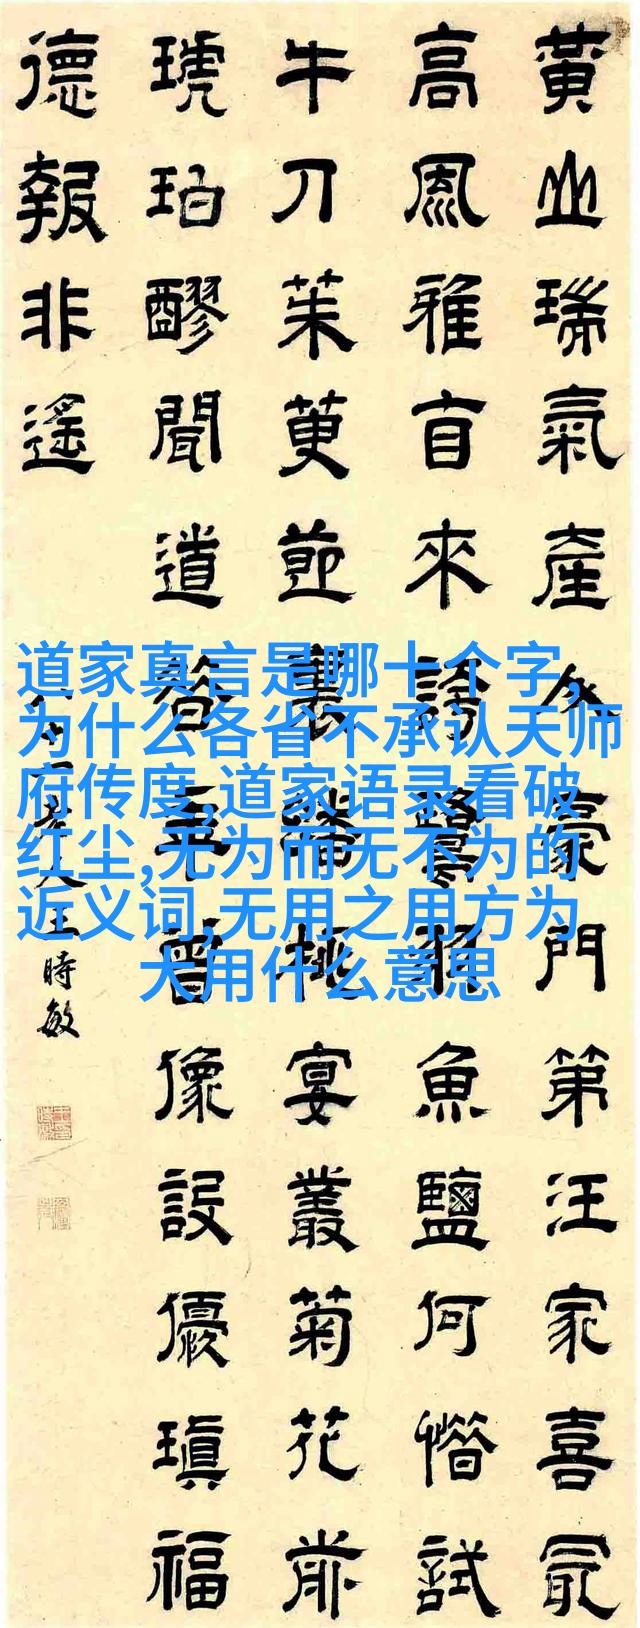 黃山瑞氣產人豪門第汪家喜冣
高風雅來魚鹽何試
牛刀茱萸節裏挑宴叢菊花前
琥珀醪聞道年曾像設優瑱福
德報非遙
王時敏
道家真言是哪十个字,
为什么各省不承认天师
府传度,道家语录看破
红尘,无为而无不为的
近义词,无用之用方为
大用什么意思